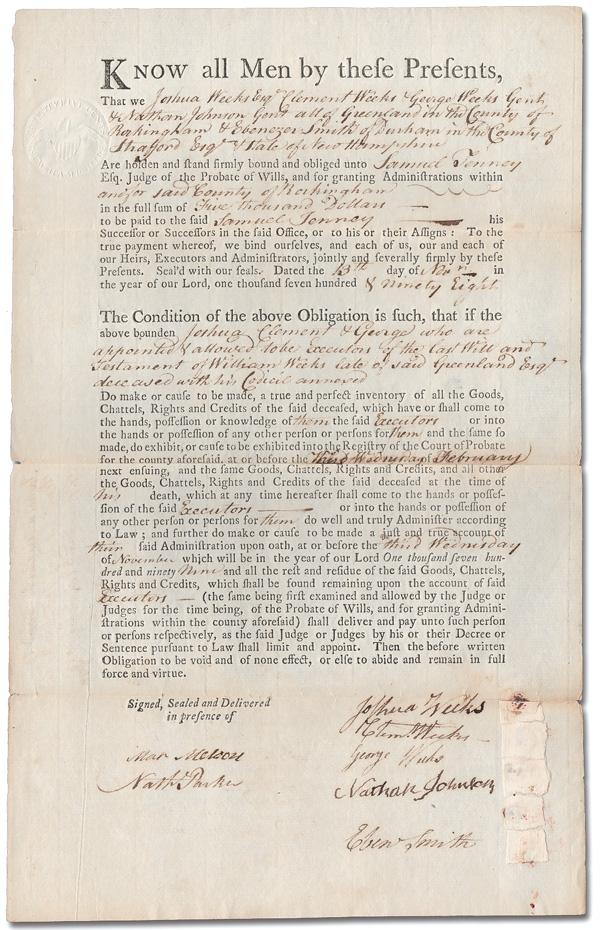 KNOW all Men by these Presents,
That we Joshua Weeks Esqr Clement Weeks & George Weeks Gent
& Nathan Johnson Gent all of Greenland in the County of
Rockingham & Ebenezer Smith of Durham in the County of
Strafford Esqr & State of New Hampshire
Are holden and stand firmly bound and obliged unto Samuel Tenney
Esq. Judge of the Probate of Wills, and for granting Administrations within
and for said County of Rockingham
in the full sum of Five thousand Dollars
to be paid to the said Samuel Tenney his
Successor or Successors in the said Office, or to his or their Assigns: To the
true payment whereof, we bind ourselves, and each of us, our and each of
our Heirs, Executors and Administrators, jointly and severally firmly by these
Presents. Seal'd with our seals. Dated the 13th day of Novr in
the year of our Lord, one thousand seven hundred & Ninety Eight
The Condition of the above Obligation is such, that if the
above bounden Joshua Clement & George who are
appointed & allowed to be Executors of the last Will and
Testament of William Weeks late of said Greenland Esqr
deceased with his Codicil annexed
Do make or cause to be made, a true and perfect inventory of all the Goods,
Chattels, Rights and Credits of the said deceased, which have or shall come to
the hands, possession or knowledge of them the said Executors or into
the hands or possession of any other person or persons for them and the same so
made, do exhibit, or cause to be exhibited into the Registry of the Court of Probate
for the county aforesaid, at or before the third Wednesday of February
next ensuing, and the same Goods, Chattels, Rights and Credits, and all other
the Goods, Chattels, Rights and Credits of the said deceased at the time of
his death, which at any time hereafter shall come to the hands or posses-
sion of the said Executors or into the hands or possession of
any other person or persons for them do well and truly Administer according
to Law; and further do make or cause to be made a just and true account of
their said Administration upon oath, at or before the third Wednesday
of November which will be in the year of our Lord One thousand seven hun-
dred and ninety Nine and all the rest and residue of the said Goods, Chattels,
Rights and Credits, which shall be found remaining upon the account of said
Executors (the same being first examined and allowed by the Judge or
Judges for the time being, of the Probate of Wills, and for granting Admini-
strations within the county aforesaid) shall deliver and pay unto such person
or persons respectively, as the said Judge or Judges by his or their Decree or
Sentence pursuant to Law shall limit and appoint. Then the before written
Obligation to be void and of none effect, or else to abide and remain in full
force and virtue.
Signed, Sealed and Delivered
in presence of
Nathl Parker
Joshua Weeks
Clemt Weeks
George Weeks
Nathan Johnson
Eben Smith